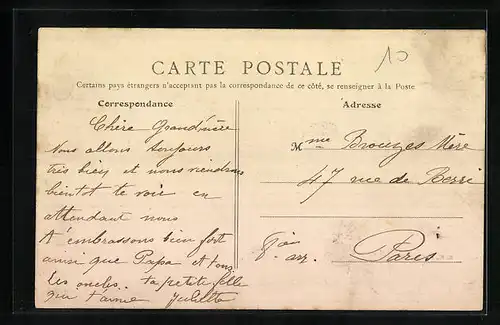 10
CARTE POSTALE
Certains pays étrangers n'acceptant pas la correspondance de ce côté, se renseigner à la Poste
Correspondance
Chère Grand'mère
Nous allons toujours
très bien et nous viendrons
bientot te voir en
attendant nous
t'embrassons bien fort
ainsi que Papa et tous
les oncles. ta petite fille
qui t'aime Juliette
Adresse
Mme Brouzes Mère
47 rue de Berri
Paris